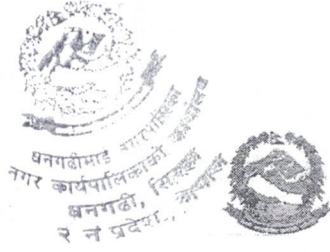 धनगढीमाई नगरपालिका
नगर कार्यपालिकाको कार्यालय
धनगढी, सिराहा
२ नं प्रदेश,